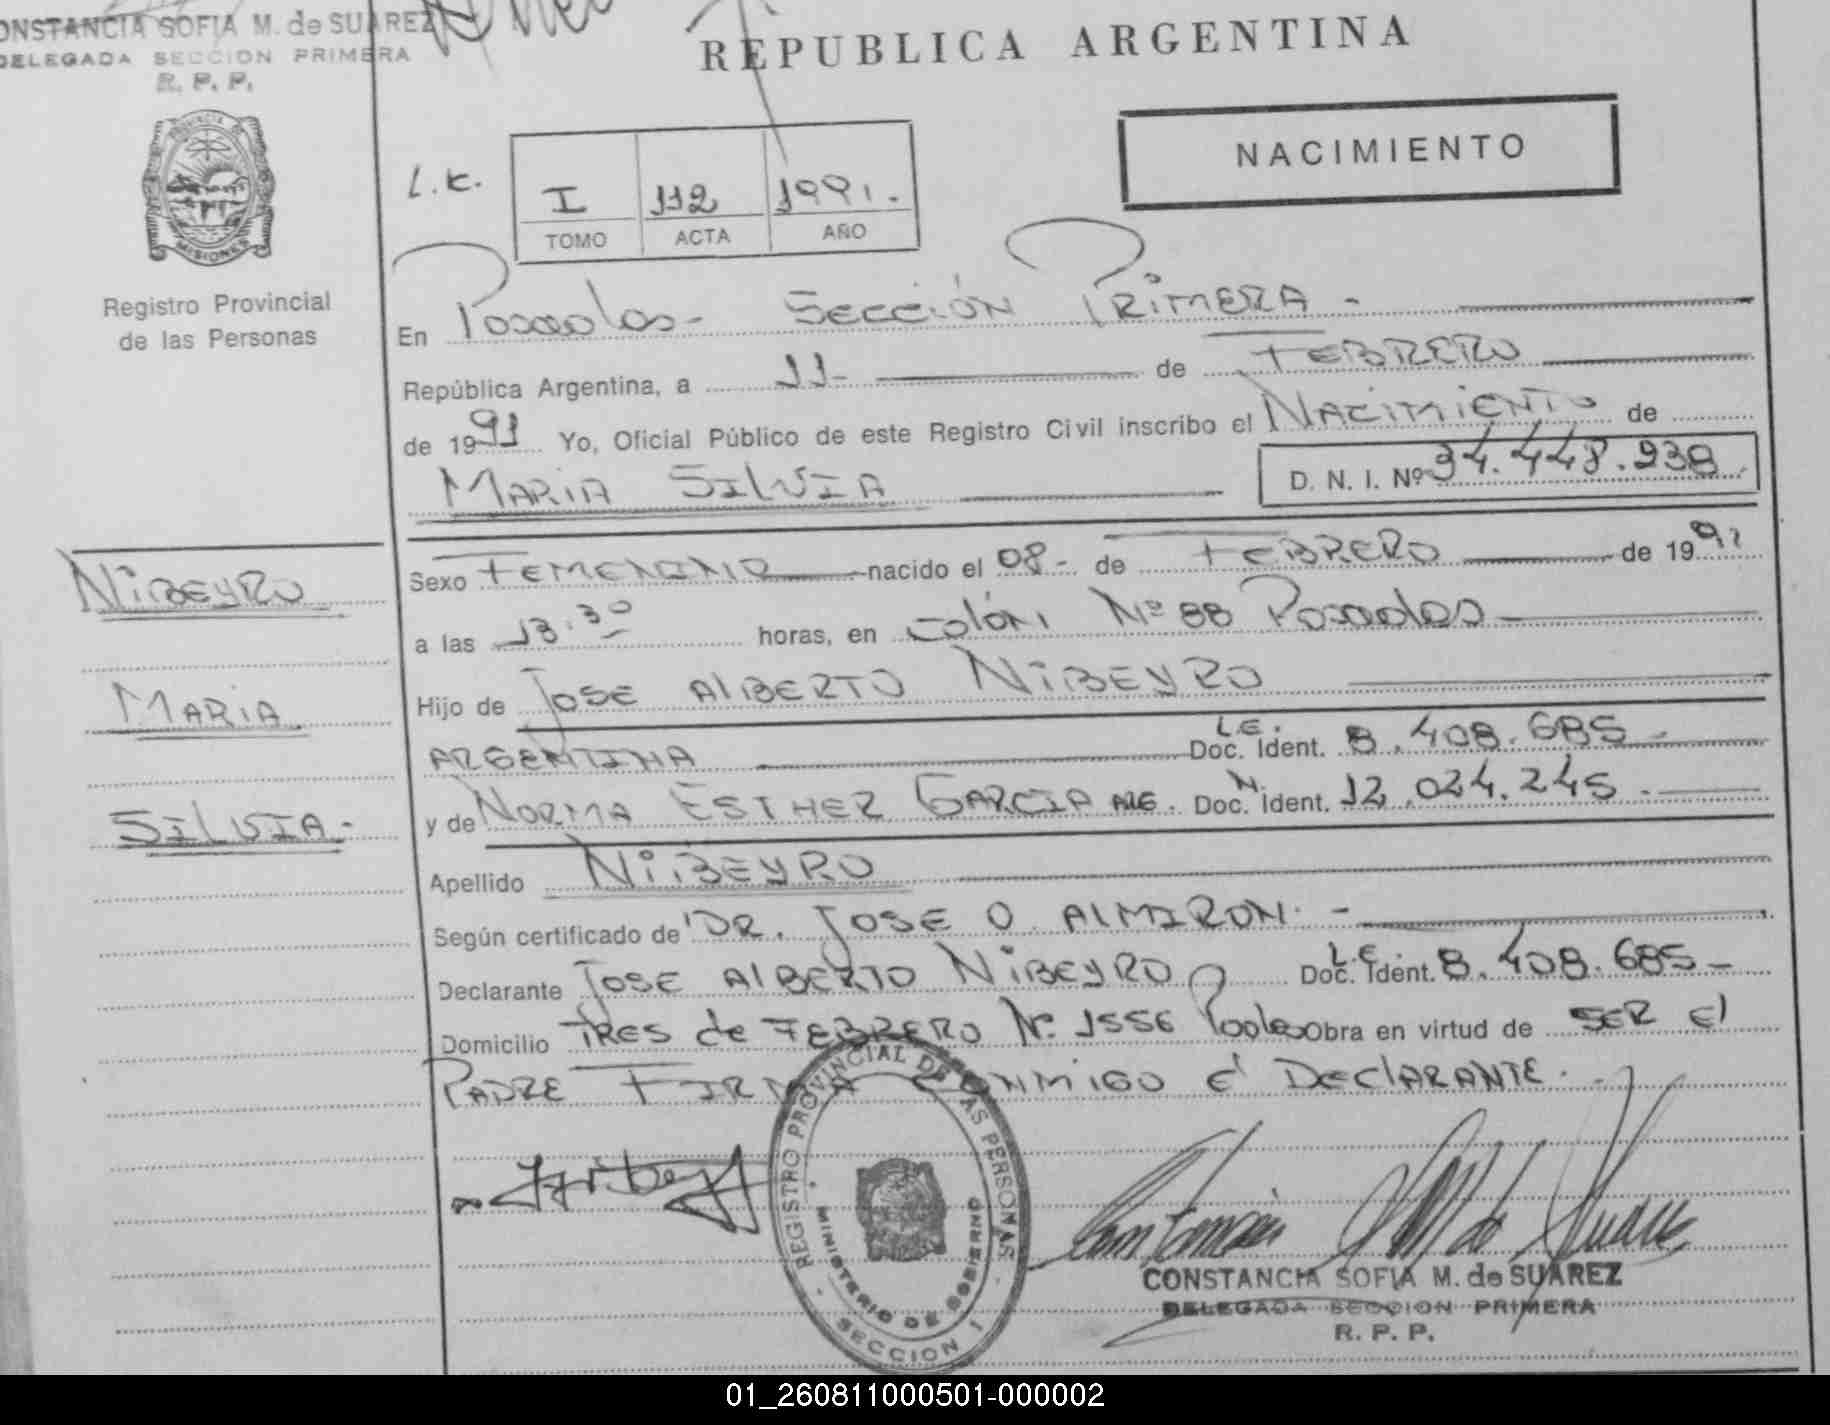 CONSTANCIA SOFIA M. de SUAREZ
DELEGADA SECCION PRIMERA
R. P. P.
REPUBLICA ARGENTINA
NACIMIENTO
PROVINCIA DE
MISIONES
Registro Provincial
de las Personas
L.K.
I 112 1991.
TOMO ACTA AÑO
En Posadas - Sección Primera -
República Argentina, a 11- de FEBRERO
de 1991 Yo, Oficial Público de este Registro Civil inscribo el Nacimiento de
MARIA SILVIA D. N. I. Nº 34.448.938
NIBEYRO
MARIA
SILVIA-
Sexo FEMENINO nacido el 08- de FEBRERO de 1991
a las 13.30 horas, en Colón Nº 88 Posadas
Hijo de JOSE AlBERTO NIBEYRO
ARGENTINA L.E. Doc. Ident. 8.408.685-
y de NORMA ESTHER GARCIA ARG. Doc. Ident. 12.024.245-
Apellido NIBEYRO
Según certificado de DR. JOSE O. AlMIRON. -
Declarante JOSE AlBERTO NIBEYRO L.E. Doc. Ident. 8.408.685-
Domicilio TRES de FEBRERO Nº 1556 Pdas Obra en virtud de SER El
PADRE FIRMA CONMIGO El DEClARANTE.
REGISTRO PROVINCIAL DE LAS PERSONAS
MINISTERIO DE GOBIERNO
SECCION I
Constancia M de Suarez
CONSTANCIA SOFIA M. de SUAREZ
DELEGADA SECCION PRIMERA
R. P. P.
01_260811000501-000002